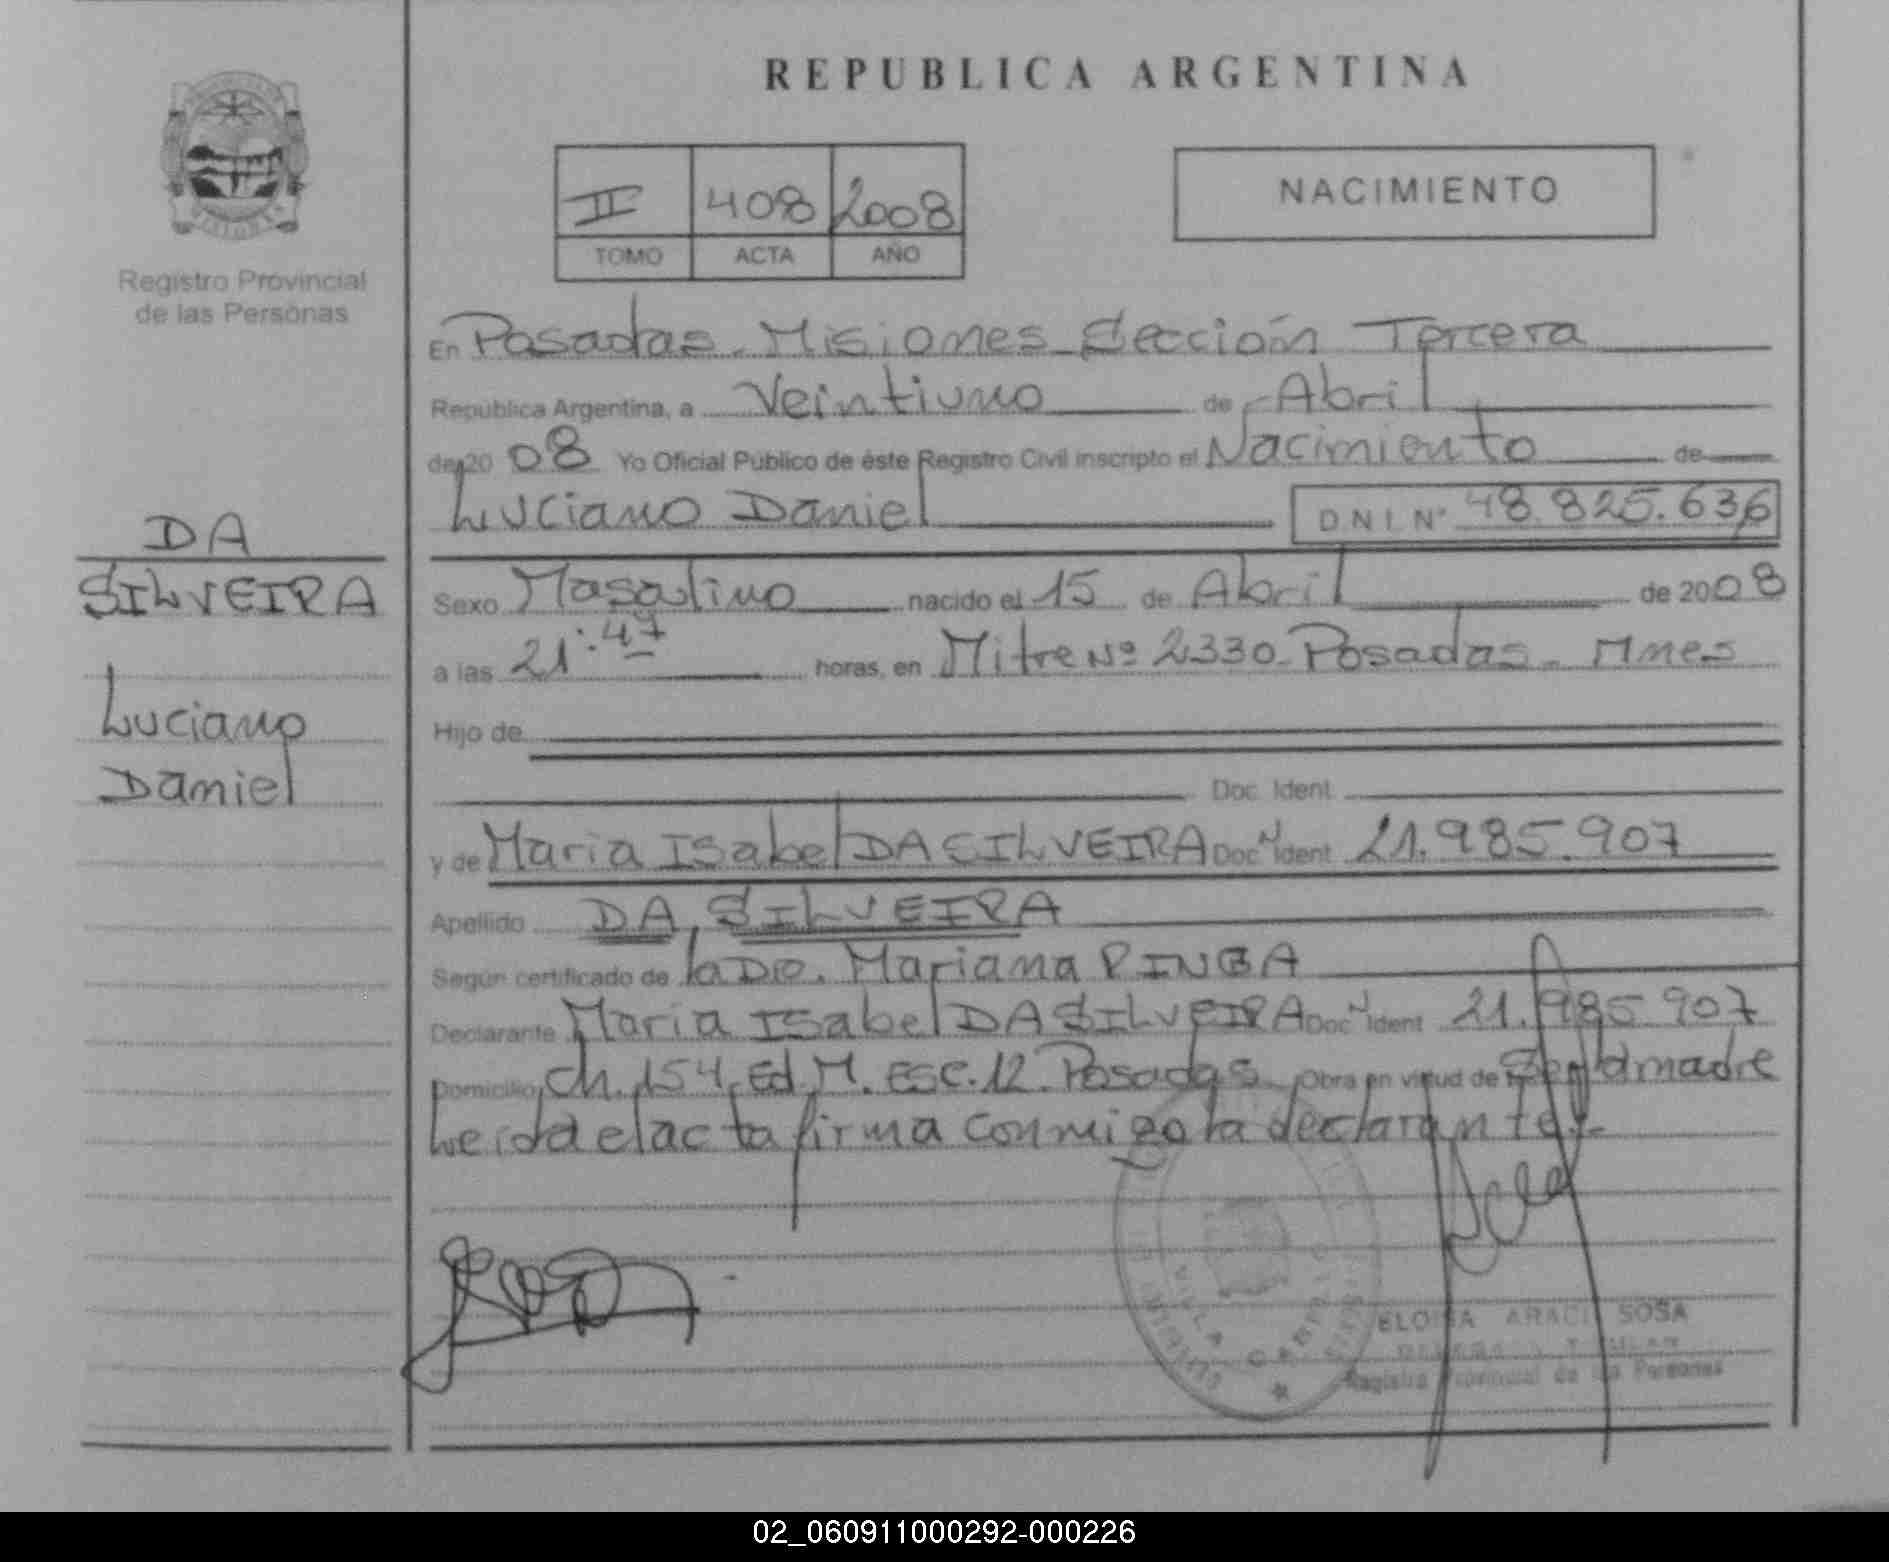 REPUBLICA ARGENTINA
II 408 2008
TOMO ACTA AÑO
NACIMIENTO
Registro Provincial
de las Personas
DA
SILVEIRA
Luciano
Daniel
En Posadas. Misiones Sección Tercera
República Argentina, a Veintiuno de Abril
de 20 08 Yo Oficial Público de éste Registro Civil inscripto el Nacimiento de
Luciano Daniel D N I N° 48.825.636
Sexo Masculino nacido el 15 de Abril de 2008
a las 21:47 horas, en Mitre Nº 2330. Posadas. Mnes
Hijo de
Doc. Ident
y de Maria Isabel DA SILVEIRA Doc. Ident 21.985.907
Apellido DA SILVEIRA
Según certificado de la Dra. Mariana PINBA
Declarante Maria Isabel DA SILVEIRA Doc. Ident 21.985.907
Domicilio Ch. 154. Ed. M. Esc. 12. Posadas Obra en virtud de Ser la madre
Leida el acta firma conmigo la declarante.-
VILLA CABELLO
ELOISA ARACI SOSA
Registro Provincial de las Personas
02_060911000292-000226